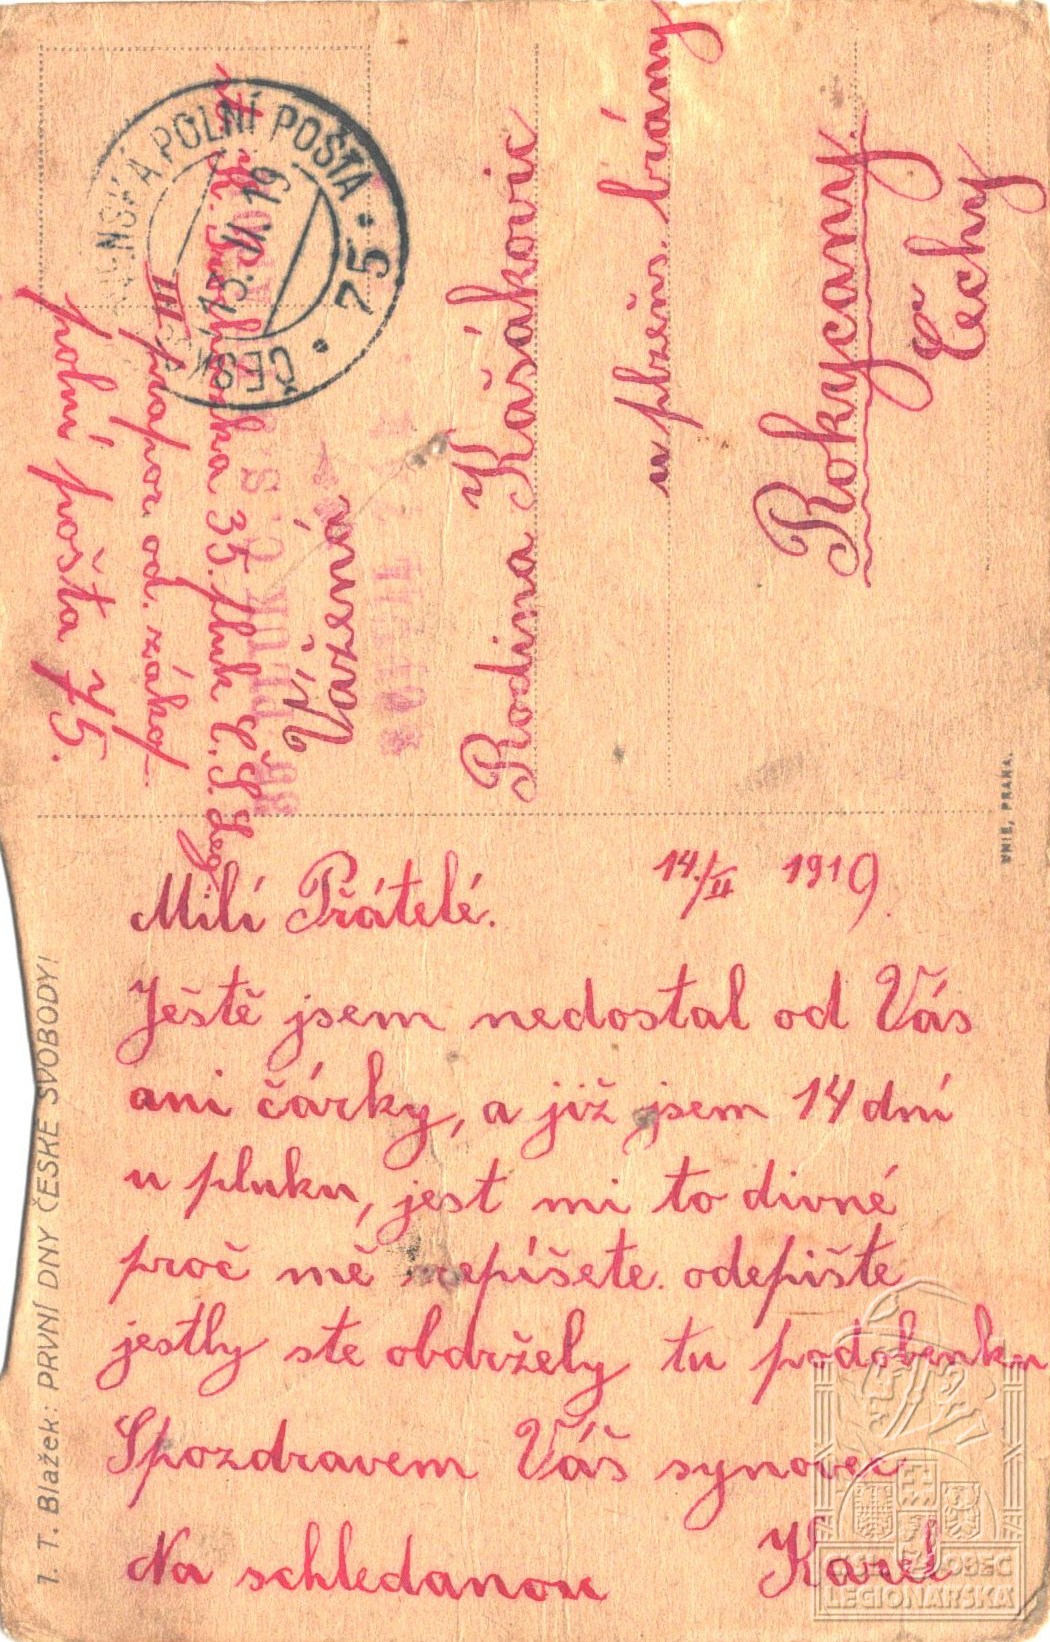 Milí Přátelé. 14./II 1919.
Ještě jsem nedostal od Vás
ani čárky, a již jsem 14 dní
u pluku, jest mi to divné
proč mě nepíšete. odepište
jestly ste obdržely tu podobenku
Spozdravem Váš synovec
Na schledanou Karel
Vážená
Rodina Kašákovic
u plzeňs. brány
Rokycany
Čechy
35. pluk Č. S. Leg.
III prapor. od. zákop.
polní pošta 75.
ČESKOSLOVENSKÁ POLNÍ POŠTA
75
13. II. 19
1. T. Blažek: PRVNÍ DNY ČESKÉ SVOBODY!
UNIE, PRAHA.
OBEC
LEGIONÁŘSKÁ